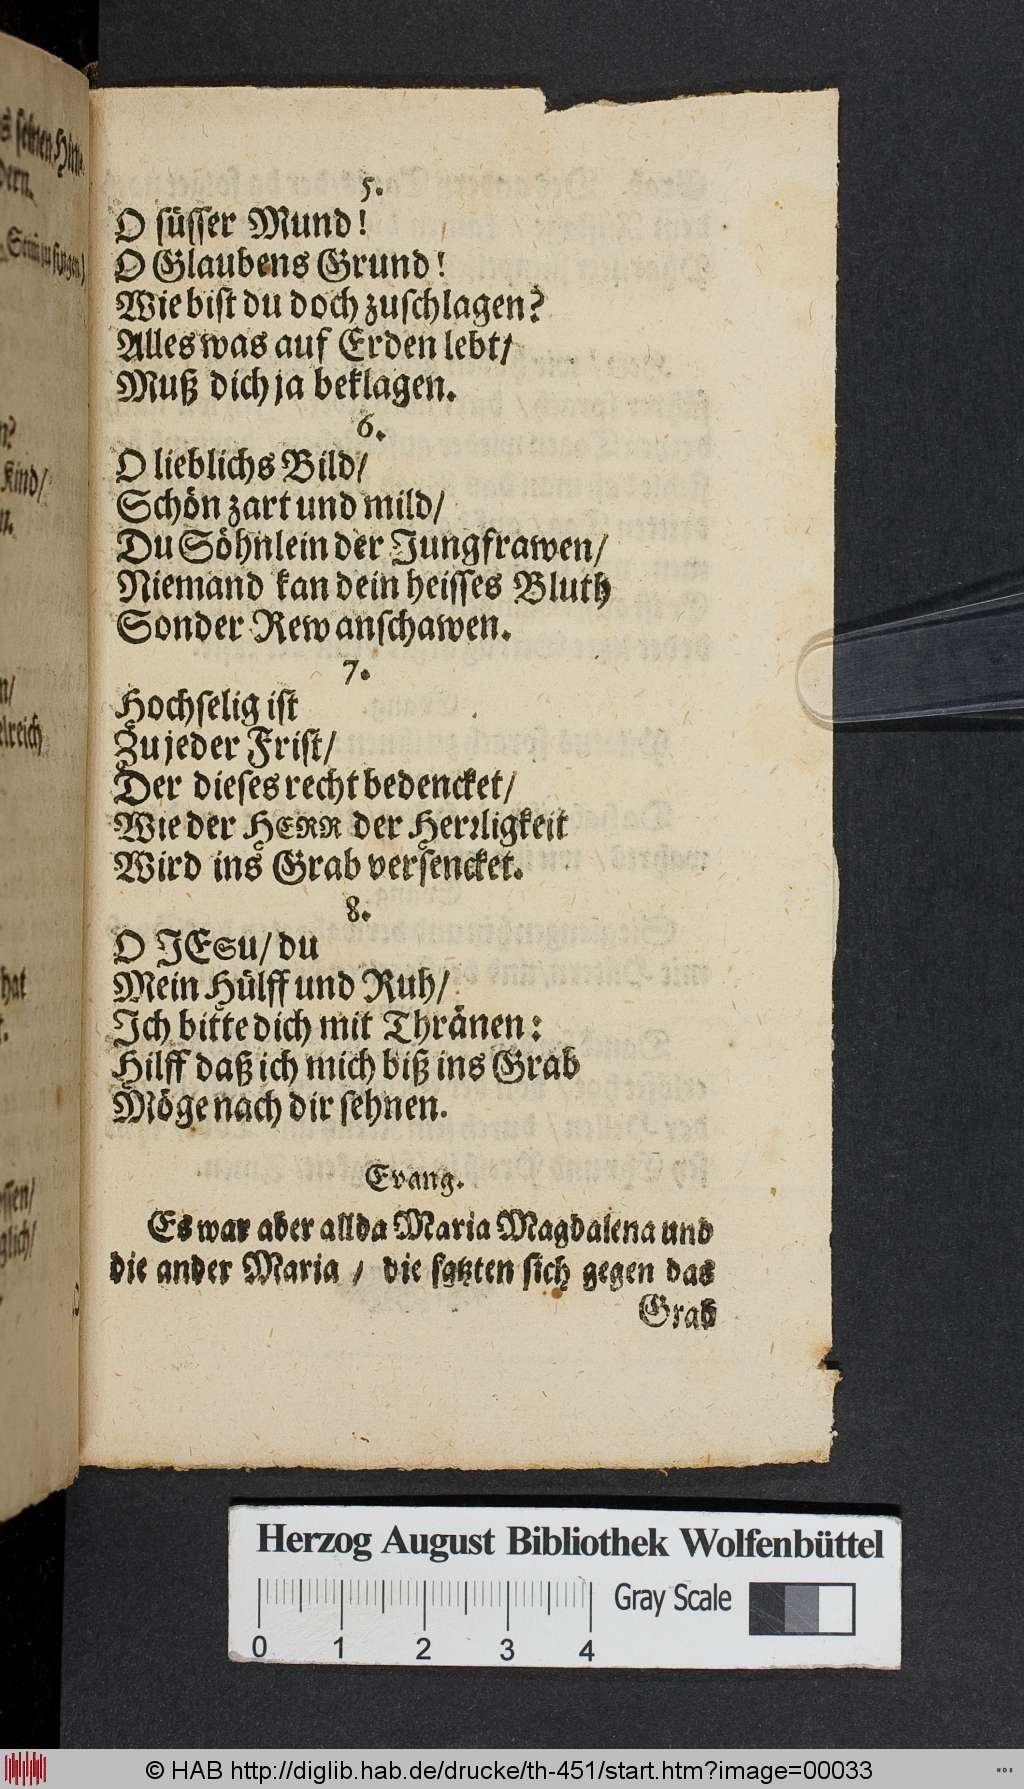 5.
O süsser Mund!
O Glaubens Grund!
Wie bist du doch zuschlagen?
Alles was auf Erden lebt/
Muß dich ja beklagen.
6.
O lieblichs Bild/
Schön zart und mild/
Du Söhnlein der Jungfrawen/
Niemand kan dein heisses Bluth
Sonder Rew anschawen.
7.
Hochselig ist
Zu jeder Frist/
Der dieses recht bedencket/
Wie der HERR der Herrligkeit
Wird ins Grab versencket.
8.
O JEsu/ du
Mein Hülff und Ruh/
Ich bitte dich mit Thränen:
Hilff daß ich mich biß ins Grab
Möge nach dir sehnen.
Evang.
Es war aber allda Maria Magdalena und
die ander Maria / die satzten sich gegen das
Grab
Herzog August Bibliothek Wolfenbüttel
Gray Scale
0 1 2 3 4
© HAB http://diglib.hab.de/drucke/th-451/start.htm?image=00033